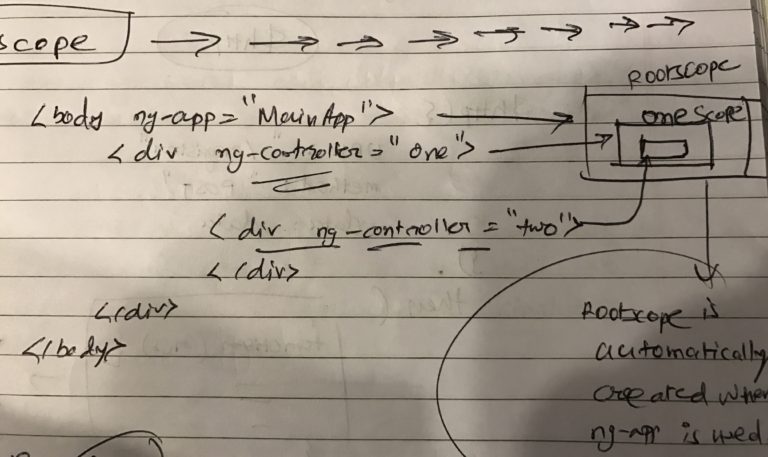 scope
<body ng-app="MainApp">
<div ng-controller="one">
<div ng-controller="two">
</div>
</div>
</body>
Rootscope
oneScope
Rootscope is
automatically
created when
ng-app is used